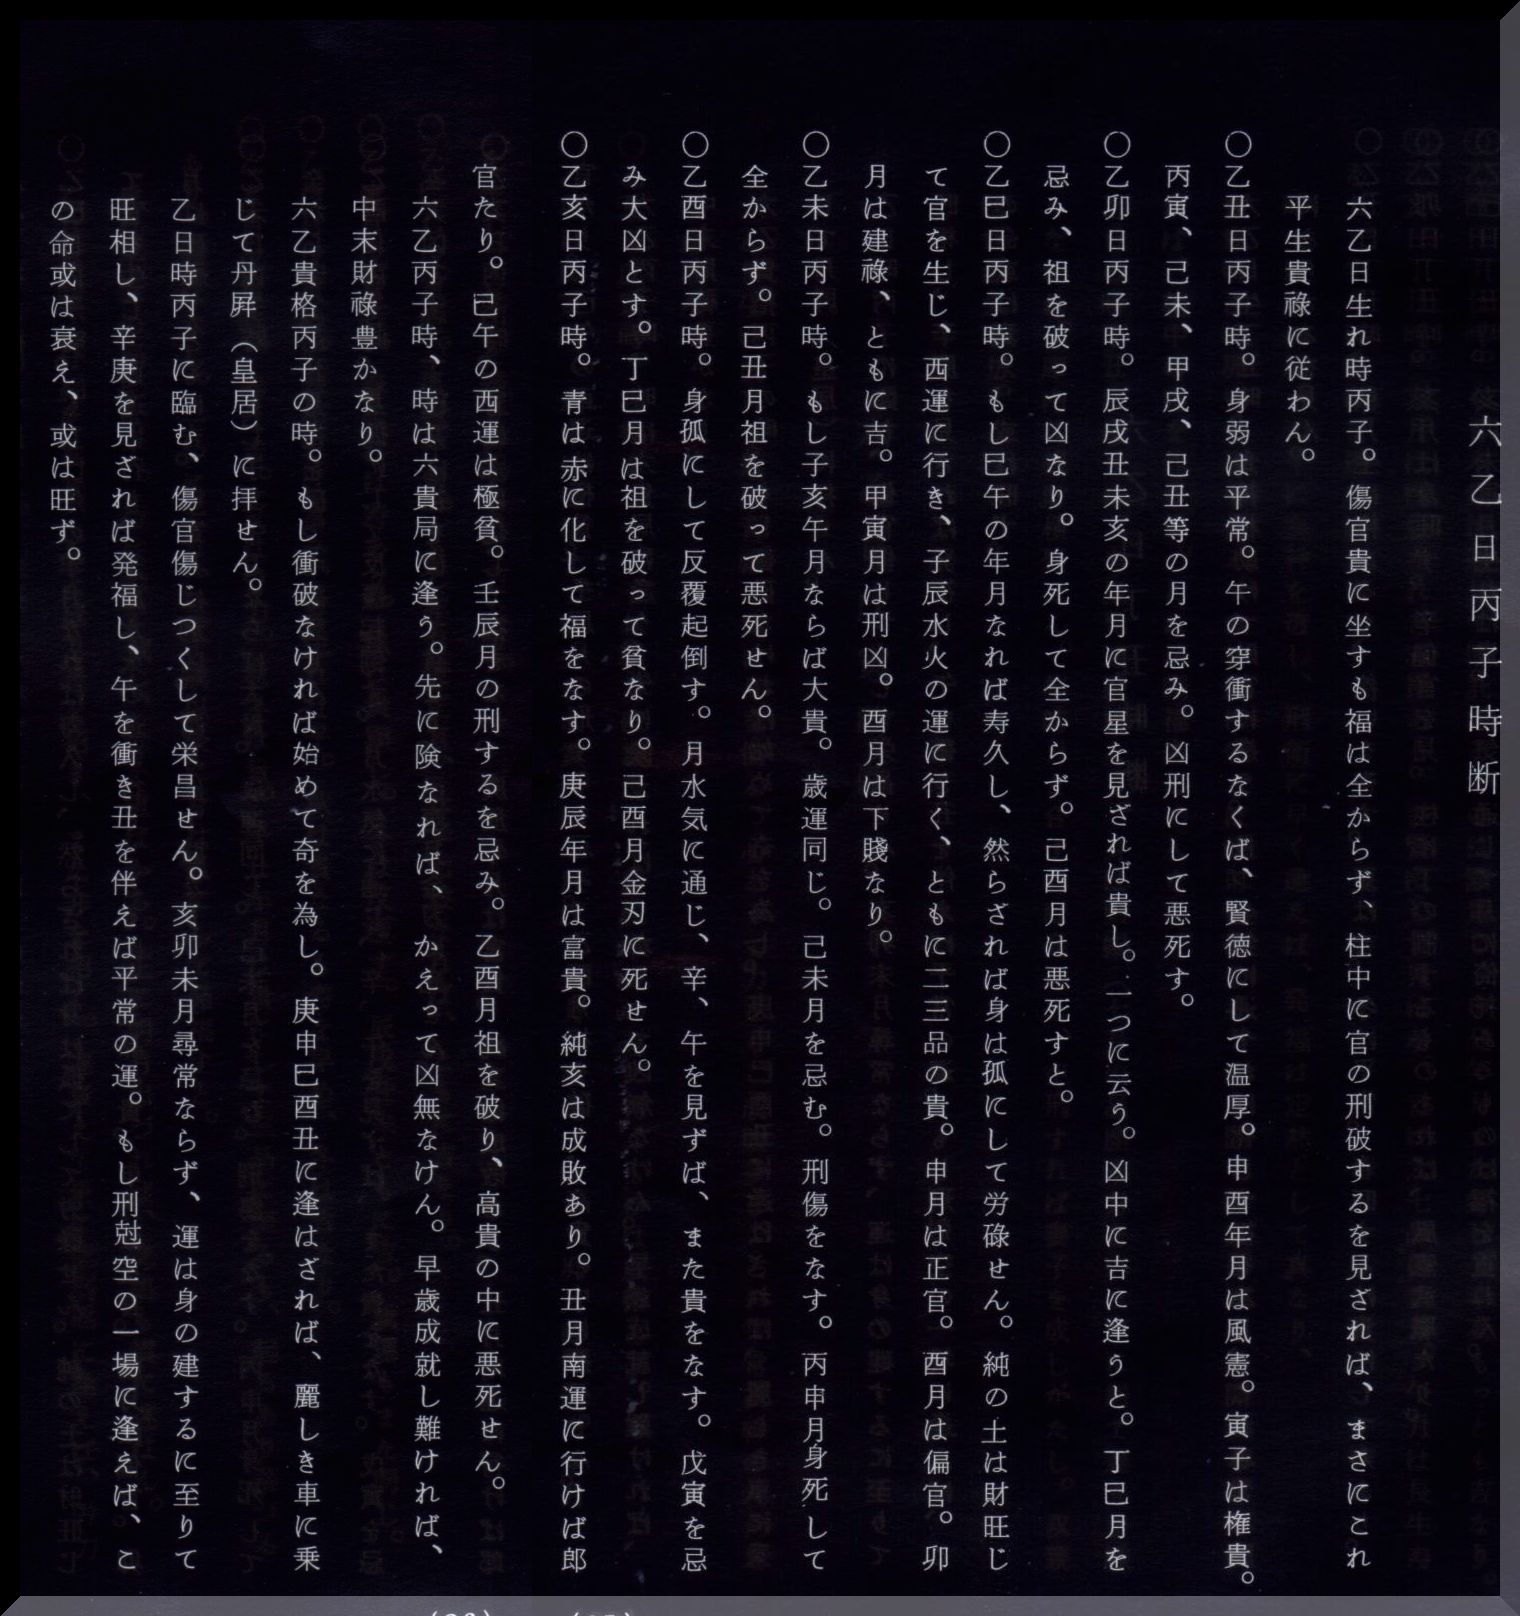 六乙日丙子時断
六乙日生れ時丙子。傷官貴に坐すも福は全からず、柱中に官の刑破するを見ざれば、まさにこれ
平生貴祿に従わん。
〇乙丑日丙子時。身弱は平常。午の穿衝するなくば、賢徳にして温厚。申酉年月は風憲。寅子は権貴。
丙寅、己未、甲戌、己丑等の月を忌み。凶刑にして悪死す。
〇乙卯日丙子時。辰戌丑未亥の年月に官星を見ざれば貴し。一つに云う。凶中に吉に逢うと。丁巳月を
忌み、祖を破って凶なり。身死して全からず。己酉月は悪死すと。
〇乙巳日丙子時。もし巳午の年月なれば寿久し、然らざれば身は孤にして労碌せん。純の土は財旺じ
て官を生じ、西運に行き、子辰水火の運に行く、ともに二三品の貴。申月は正官。酉月は偏官。卯
月は建祿、ともに吉。甲寅月は刑凶。酉月は下賤なり。
〇乙未日丙子時。もし子亥午月ならば大貴。歳運同じ。己未月を忌む。刑傷をなす。丙申月身死して
全からず。己丑月祖を破って悪死せん。
〇乙酉日丙子時。身孤にして反覆起倒す。月水気に通じ、辛、午を見ずば、また貴をなす。戊寅を忌
み大凶とす。丁巳月は祖を破って貧なり。己酉月金刃に死せん。
〇乙亥日丙子時。青は赤に化して福をなす。庚辰年月は富貴。純亥は成敗あり。丑月南運に行けば郎
官たり。巳午の西運は極貧。壬辰月の刑するを忌み。乙酉月祖を破り、高貴の中に悪死せん。
六乙丙子時、時は六貴局に逢う。先に険なれば、かえって凶無なけん。早歳成就し難ければ、
中末財祿豊かなり。
六乙貴格丙子の時。もし衝破なければ始めて奇を為し。庚申巳酉丑に逢はざれば、麗しき車に乗
じて丹屏（皇居）に拝せん。
乙日時丙子に臨む、傷官傷じつくして栄昌せん。亥卯未月尋常ならず、運は身の建するに至りて
旺相し、辛庚を見ざれば発福し、午を衝き丑を伴えば平常の運。もし刑尅空の一場に逢えば、こ
の命或は衰え、或は旺ず。